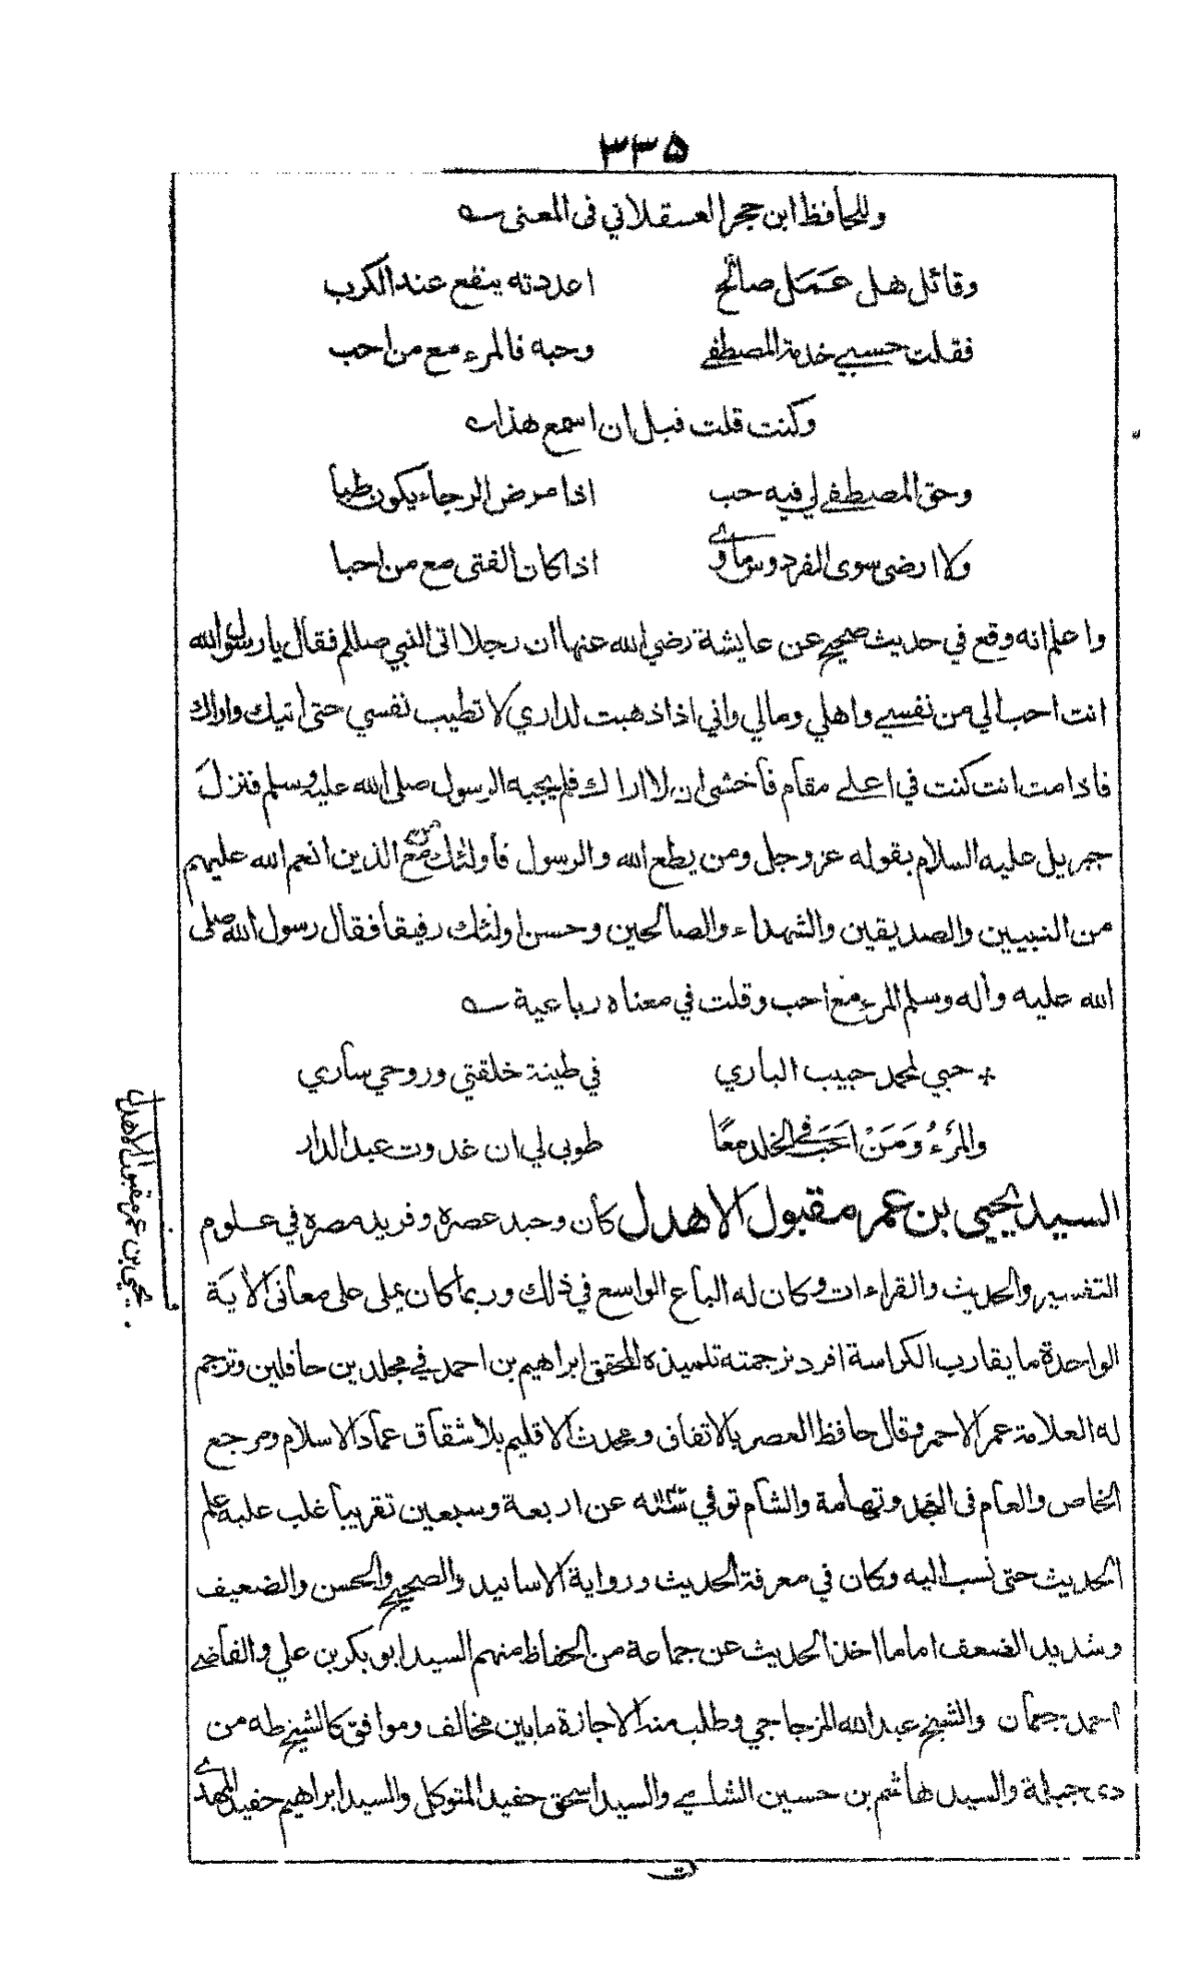 ٣٣٥
وللحافظ ابن حجر العسقلاني في المعنى
وقائل هل عَمَل صالح اعددته ينفع عند الكرب
فقلت حسبي خدمة المصطفى وحبه فالمرء مع من احب
وكنت قلت قبل ان اسمع هذا
وحق المصطفى لي فيه حب اذا مرض الرجاء يكون طبا
ولا ارضى سوى الفردوس مأوى اذا كان الفتى مع من احبا
واعلم انه وقع في حديث صحيح عن عايشة رضي الله عنها ان رجلا اتى النبي صللم فقال يا رسول الله
انت احب الي من نفسي واهلي ومالي واني اذا ذهبت لداري لا تطيب نفسي حتى اتيك واراك
فاذا مت انت كنت في اعلى مقام فأخشى ان لا اراك فلم يجبه الرسول صلى الله عليه وسلم فنزل
جبريل عليه السلام بقوله عز وجل ومن يطع الله والرسول فأولئك مع الذين انعم الله عليهم
من النبيين والصديقين والشهداء والصالحين وحسن اولئك رفيقا فقال رسول الله صلى
الله عليه وآله وسلم المرء مع من احب وقلت في معناه رباعية
* حبي لمحمد حبيب الباري في طينة خلقتي وروحي ساري
والمَرْءُ وَمَنْ احَبَّ في الخلد معًا طوبى لي ان غدوت عبد الدار
السيد يحيى بن عمر مقبول الاهدل كان وحيد عصره وفريد مصره في علوم
التفسير والحديث والقراءات وكان له الباع الواسع في ذلك وربما كان يملى على معانى الأية
الواحدة ما يقارب الكراسة افرد ترجمته تلميذه المحقق ابراهيم بن احمد في مجلدين حافلين وترجم
له العلامة عمر الاحمر وقال حافظ العصر بالاتفاق ومحدث الاقليم بلا شقاق عماد الاسلام ومرجع
الخاص والعام في النجد وتهامة والشام توفي سنة عن اربعة وسبعين تقريبا غلب عليه علم
الحديث حتى نسب اليه وكان في معرفة الحديث ورواية الاسانيد والصحيح والحسن والضعيف
وشديد الضعف اماما اخذ الحديث عن جماعة من الحفاظ منهم السيد ابو بكر بن علي والقاضي
احمد جمان والشيخ عبد الله المزجاجي وطلب منه الاجازة ما بين مخالف وموافق كالشيخ طه من
ذى جبلة والسيد هاشم بن حسين الشامي والسيد اسحق حفيد المتوكل والسيد ابراهيم حفيد المهدى
يحيى بن عمر مقبول الاهدل